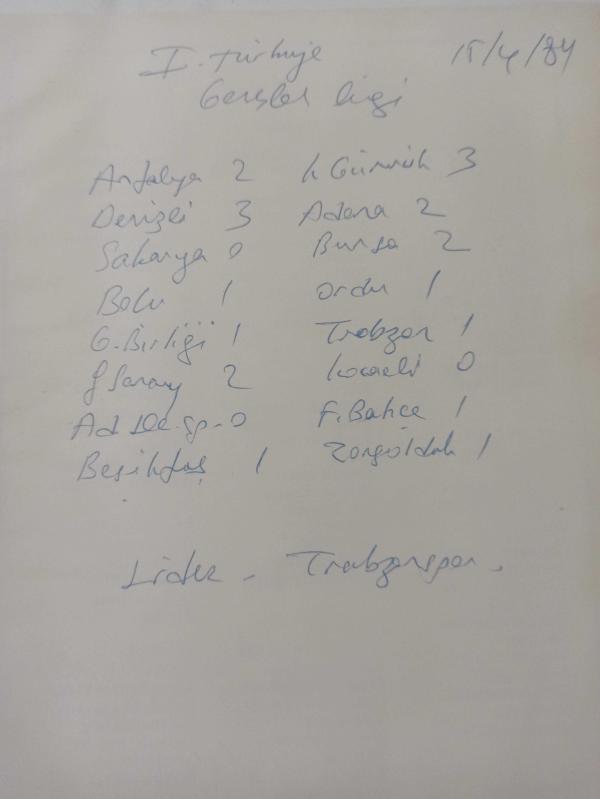 I. Türkiye 15/4/84
Gençler ligi
Antalya 2 K Gümrük 3
Denizli 3 Adana 2
Sakarya 0 Bursa 2
Bolu 1 Ordu 1
G. Birliği 1 Trabzon 1
G Saray 2 Kocaeli 0
Ad De. sp. 0 F. Bahçe 1
Beşiktaş 1 Zonguldak 1
Lider - Trabzonspor.